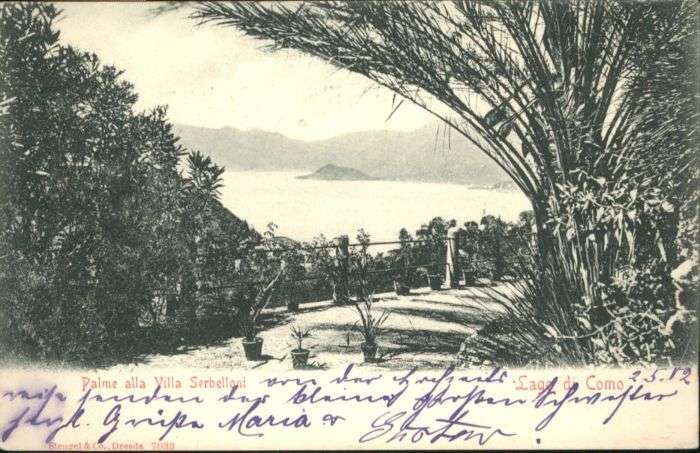 Palme alla Villa Serbelloni
Lago di Como
von der Hochzeits 2.5.12
reise senden der kleinen großen Schwester
herzl. Grüße Maria &
Stengel & Co., Dresda 7033